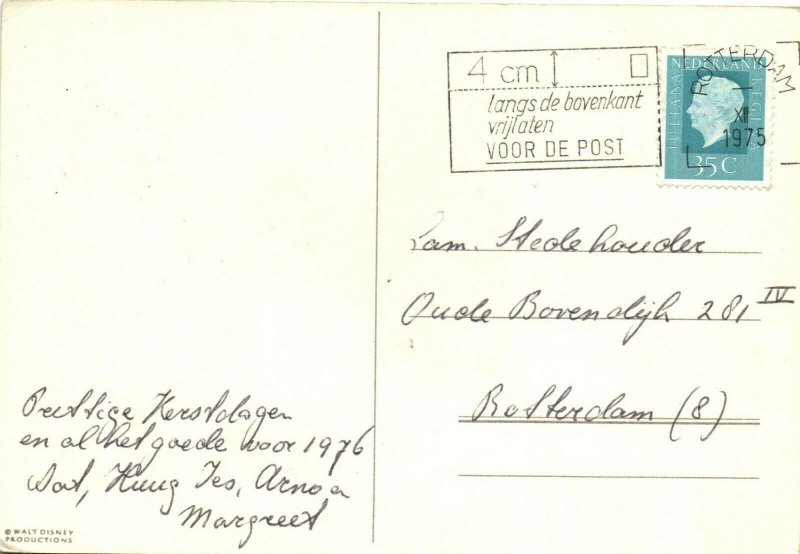 4 cm
langs de bovenkant
vrijlaten
VOOR DE POST
NEDERLAND
JULIANA REGINA
35 C
ROTTERDAM
XII
1975
Fam. Stedehouder
Oude Bovendijk 281 IV
Rotterdam (8)
Prettige Kerstdagen
en al het goede voor 1976
Huug Ies, Arno
Margreet
© WALT DISNEY
PRODUCTIONS